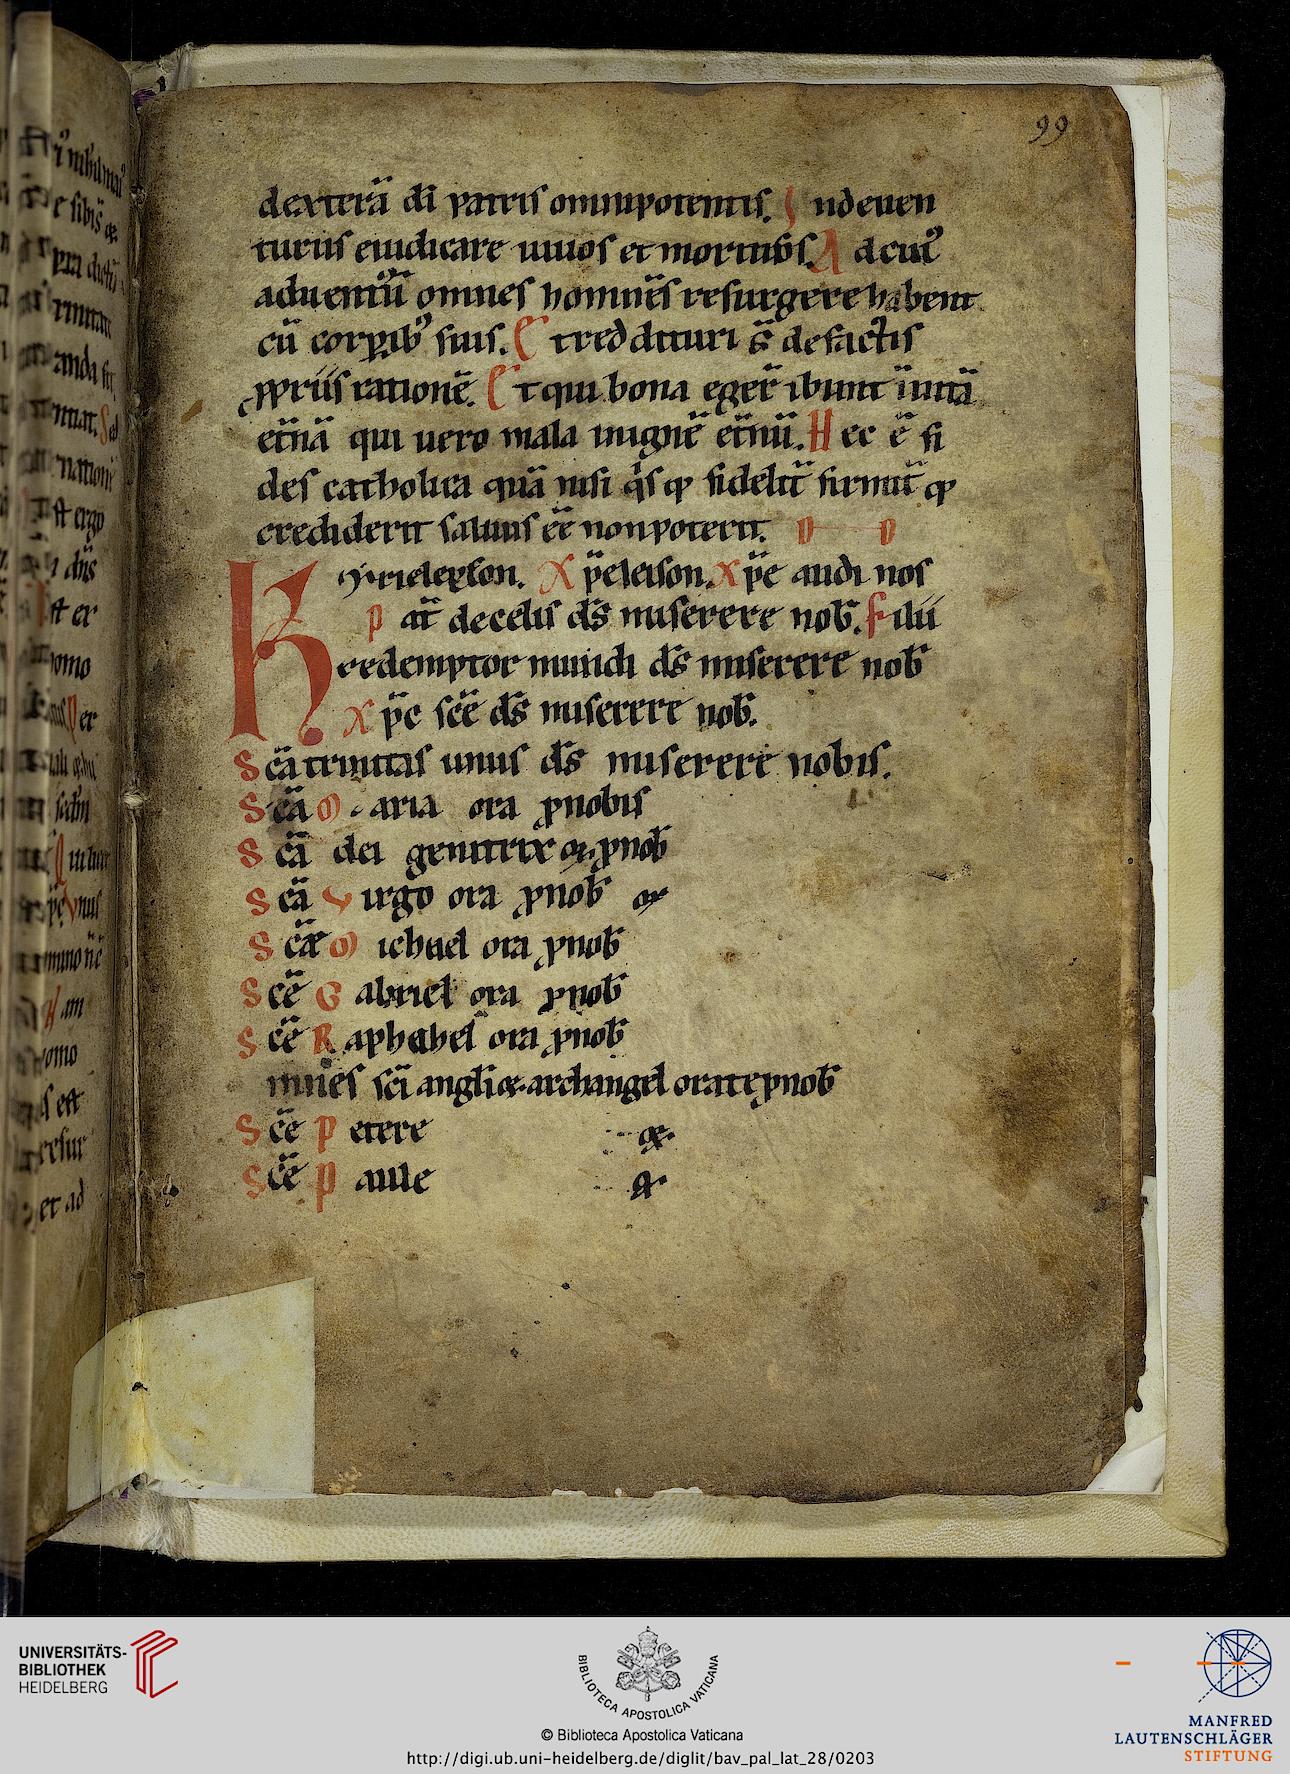 99
dexterā di patris omnipotentis. Indeuen
turus eiudicare uiuos et mortuos. Adcui᷒
aduentū omnes homines resurgere habent
cū corꝑib᷒ suis. Et reddituri s̄ defactis
ꝓpriis rationē. Et qui bona egeř ibunt ī uitā
et̄nā qui uero mala inignē et̄nū. Hec ē fi
des catholica quā nisi q̇s ꝙ fidelit̄ firmit̄ ꝙ
crediderit saluus ēē nonpoterit.
Kyrieleyson. Xp̄eleison. Xp̄e audi nos
Pat̄ decelis ds̄ miserere nob̄. Filii
redemptor mundi ds̄ miserere nob̄
Xp̄e sc̄e ds̄ miserere nob̄.
Sc̄a trinitas unus ds̄ miserere nobis.
Sc̄a Maria ora ꝓnobis
Sc̄a dei genitrix or̄ ꝓnob̄
Sc̄a Virgo ora ꝓnob̄ or
Sc̄e Michael ora ꝓnob̄
Sc̄e Gabriel ora ꝓnob̄
Sc̄e Raphahel ora ꝓnob̄
mnes sc̄i angl̄i & archangel orate ꝓnob̄
Sc̄e Petre or
Sc̄e Paule or
UNIVERSITÄTS-
BIBLIOTHEK
HEIDELBERG
BIBLIOTECA APOSTOLICA VATICANA
© Biblioteca Apostolica Vaticana
http://digi.ub.uni-heidelberg.de/diglit/bav_pal_lat_28/0203
MANFRED
LAUTENSCHLÄGER
STIFTUNG